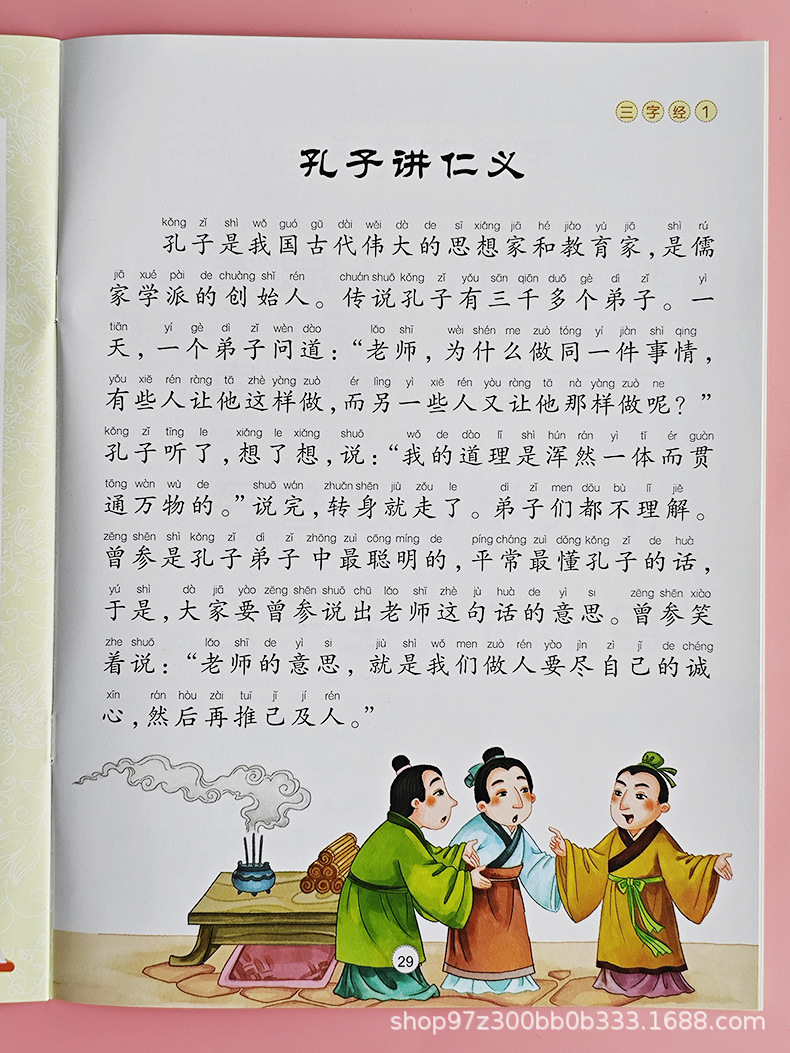 三字经1
孔子讲仁义
kǒng zǐ shì wǒ guó gǔ dài wěi dà de sī xiǎng jiā hé jiào yù jiā shì rú
孔子是我国古代伟大的思想家和教育家，是儒
jiā xué pài de chuàng shǐ rén chuán shuō kǒng zǐ yǒu sān qiān duō gè dì zǐ yì
家学派的创始人。传说孔子有三千多个弟子。一
tiān yí gè dì zǐ wèn dào lǎo shī wèi shén me zuò tóng yí jiàn shì qing
天，一个弟子问道：“老师，为什么做同一件事情，
yǒu xiē rén ràng tā zhè yàng zuò ér lìng yì xiē rén yòu ràng tā nà yàng zuò ne
有些人让他这样做，而另一些人又让他那样做呢？”
kǒng zǐ tīng le xiǎng le xiǎng shuō wǒ de dào lǐ shì hún rán yì tǐ ér guàn
孔子听了，想了想，说：“我的道理是浑然一体而贯
tōng wàn wù de shuō wán zhuǎn shēn jiù zǒu le dì zǐ men dōu bù lǐ jiě
通万物的。”说完，转身就走了。弟子们都不理解。
zēng shēn shì kǒng zǐ dì zǐ zhōng zuì cōng míng de píng cháng zuì dǒng kǒng zǐ de huà
曾参是孔子弟子中最聪明的，平常最懂孔子的话，
yú shì dà jiā yào zēng shēn shuō chū lǎo shī zhè jù huà de yì si zēng shēn xiào
于是，大家要曾参说出老师这句话的意思。曾参笑
zhe shuō lǎo shī de yì si jiù shì wǒ men zuò rén yào jìn zì jǐ de chéng
着说：“老师的意思，就是我们做人要尽自己的诚
xīn rán hòu zài tuī jǐ jí rén
心，然后再推己及人。”
29
shop97z300bb0b333.1688.com